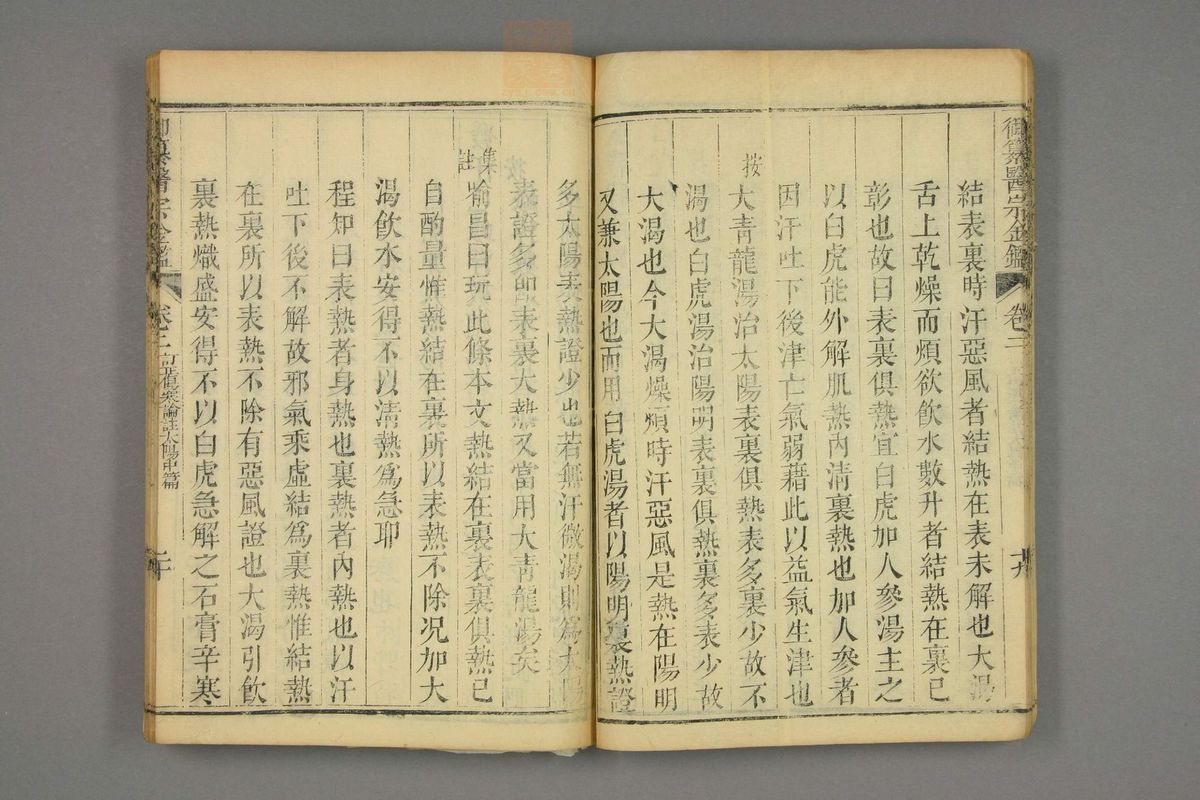 御纂醫宗金鑑
卷三
十九
結表裏時汗惡風者結熱在表未解也大渴
舌上乾燥而煩欲飲水數升者結熱在裏已
彰也故曰表裏俱熱宜白虎加人參湯主之
以白虎能外解肌熱內清裏熱也加人參者
因汗吐下後津亡氣弱藉此以益氣生津也
按
大青龍湯治太陽表裏俱熱表多裏少故不
渴也白虎湯治陽明表裏俱熱裏多表少故
大渴也今大渴燥煩時汗惡風是熱在陽明
又兼太陽也而用白虎湯者以陽明裏熱證
多太陽表熱證少也若無汗微渴則為太陽
表證多即表裏大熱又當用大青龍湯矣
集註
喻昌曰玩此條本文熱結在裏表裏俱熱已
自酌量惟熱結在裏所以表熱不除况加大
渴飲水安得不以清熱爲急耶
程知曰表熱者身熱也裏熱者內熱也以汗
吐下後不解故邪氣乘虛結爲裏熱惟結熱
在裏所以表熱不除有惡風證也大渴引飲
裏熱熾盛安得不以白虎急解之石膏辛寒
御纂醫宗金鑑
卷三
訂正傷寒論註太陽中篇
二十